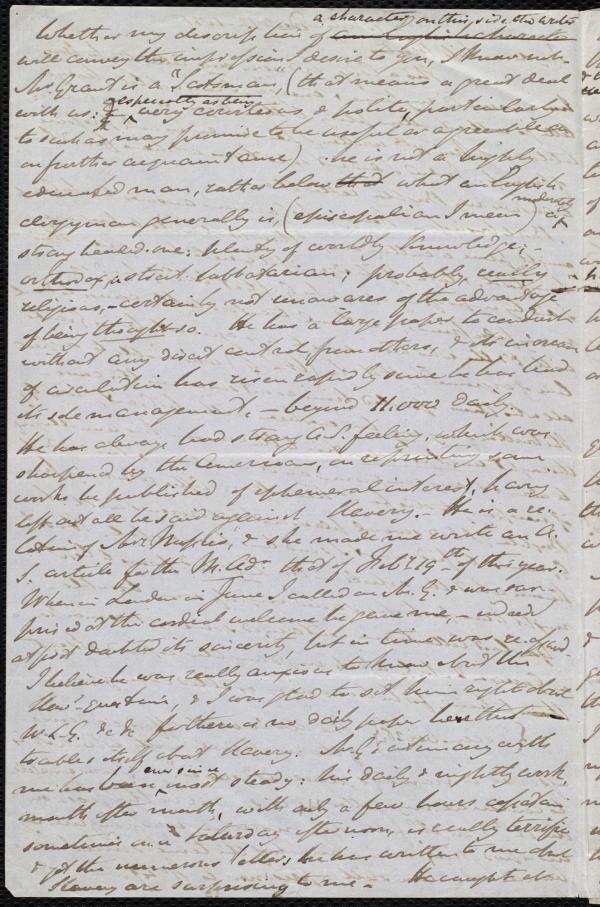 a character, on this side the water
Whether my description of an English character
will convey the impression I desire to you, I know not.
Mr Grant is a "Scotsman," (that means a great deal
with us: especially as being very courteous & polite, particularly
to such as may promise to be useful or agreeable
on further acquaintance) he is not a highly
educated man, rather below that what an English
clergyman generally is (episcopalian I mean)
strong headed one: plenty of worldly knowledge; –
orthodox, a strict sabbatarian; probably, really
religious, – certainly not unaware of the advantage
of being thought so. He has a large paper to conduct
without any direct control from others, & its increase
of circulation has risen rapidly since he has had
its sole management, – beyond 11.000 daily.
He has always had strong A.S. feeling, which was
sharpened by the Americans, on reprinting some
works he published of ephemeral interest, having
left out all he said against slavery. – He is a re-
lation of Mr & she made me write an A.
S. article for the M. Adr. that of Feby 19th of this year.
When in London in June I called on Mr. G. & was sur-
prised at the cordial welcome he gave me, – indeed
at first doubted its sincerity, but in time was re-assured.
I believe he was really anxious to know about the
Slav- question, & I was glad to set him right about
W.L.G. &c &c for there is no daily paper here that
troubles itself about slavery. Mr G's intimacy with
me has been ever since most steady: his daily & nightly work,
month after month, with only a few hours cessation
sometimes on a Saturday afternoon, is really terrific
& yet the numerous letters he has written to me about
Slavery are surprising to me – He caught